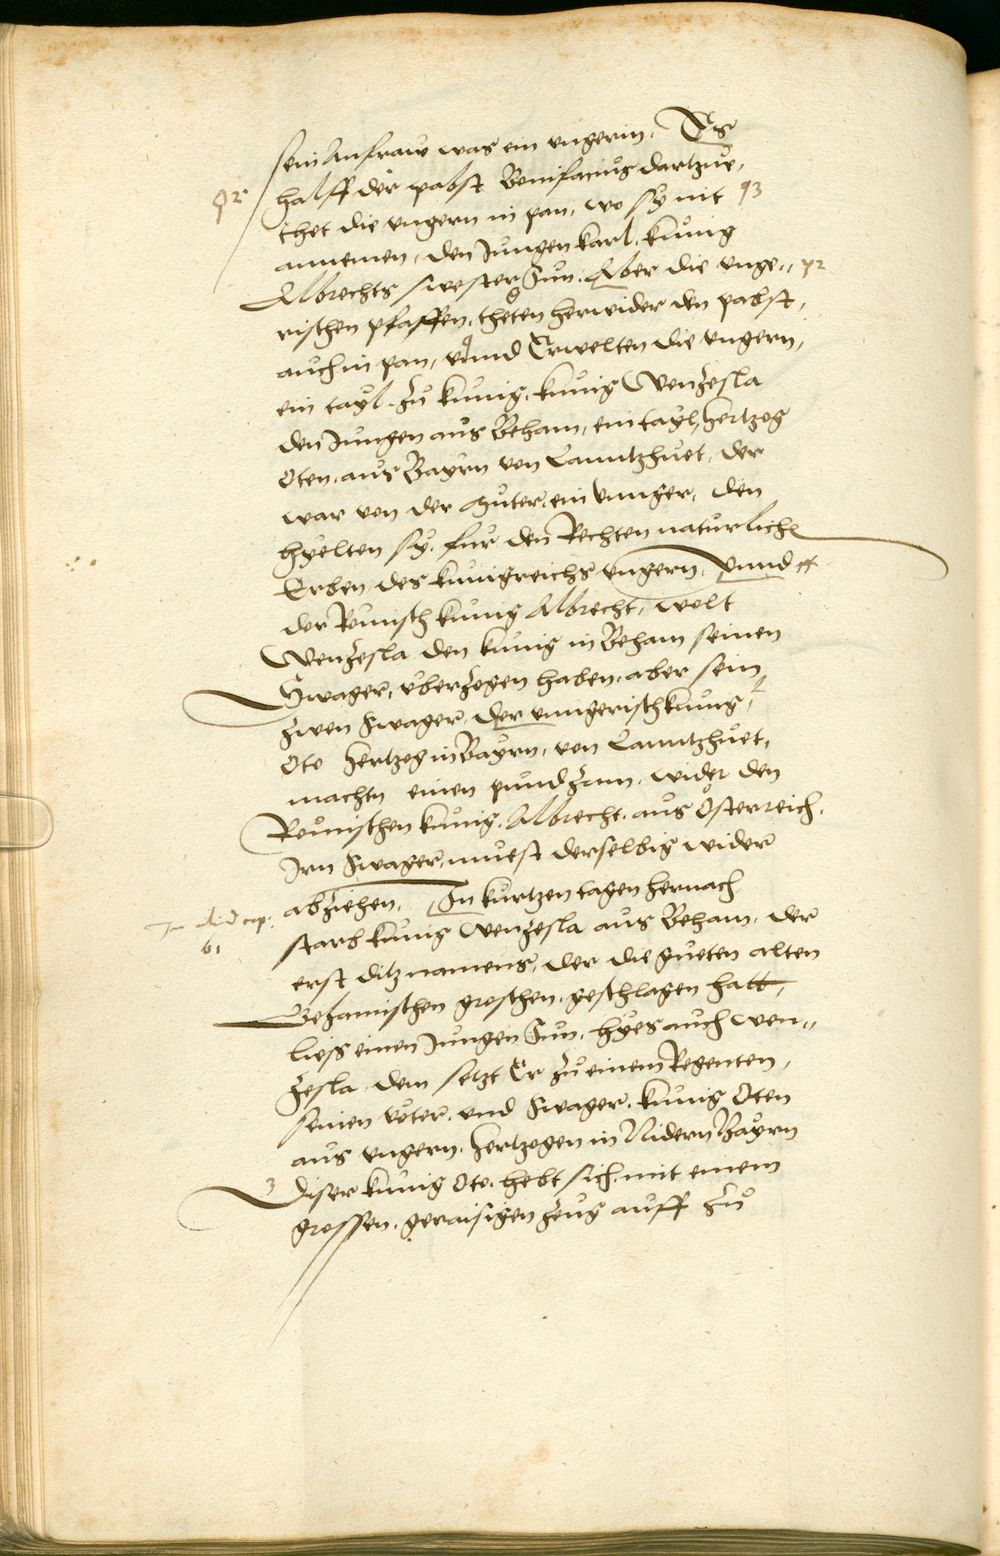 sein Anfraw was ein vngerin. Es
halff der pabst Bonifacius dartzue,
thet die vngern in pan, wo sy nit
annemen, den Jungen karl, kunig
Albrechts swester Sun. Aber die vnge„
rischen pfaffen, theten herwider den pabst,
auch in pan, vnnd Erwelten die vngern,
ein tayl zu kunig, kunig Wenzesla
den Jungen aus Beham, ein tayl, hertzog
Oten, aus Bayrn von Lanntzhuet, der
war von der Muter, ein Vnnger, den
hyelten sy, fur den Rechten naturlichen
Erben des kunigreichs vngern. Vnnd
der Römisch kunig Albrecht, wolt
Wenzesla den kunig in Beham seinen
Swager, vberzogen haben, aber sein
zwen Swager, der vnngerisch kunig,
Oto hertzog in Bayrn, von Lanntzhuet,
machtn einen pund zam, wider den
Römischen kunig, Albrecht, aus Österreich,
Irn Swager, muest derselbig wider
abziehen. In kurtzen tagen hernach
starb kunig Wenzesla aus Beham, der
erst ditz namens, der die gueten alten
Behamischen groschen, geschlagen hatt,
liess einen Jungen Sun, hyes auch Wen„
zesla, dem setzt Er zu einem Regenten,
seinen vetter, vnd Swager, kunig Oten
aus vngern, hertzogen in Nidern Bayrn
Diser kunig Oto, hebt sich, mit einem
grossen, geraisigen zeug auff zu
61